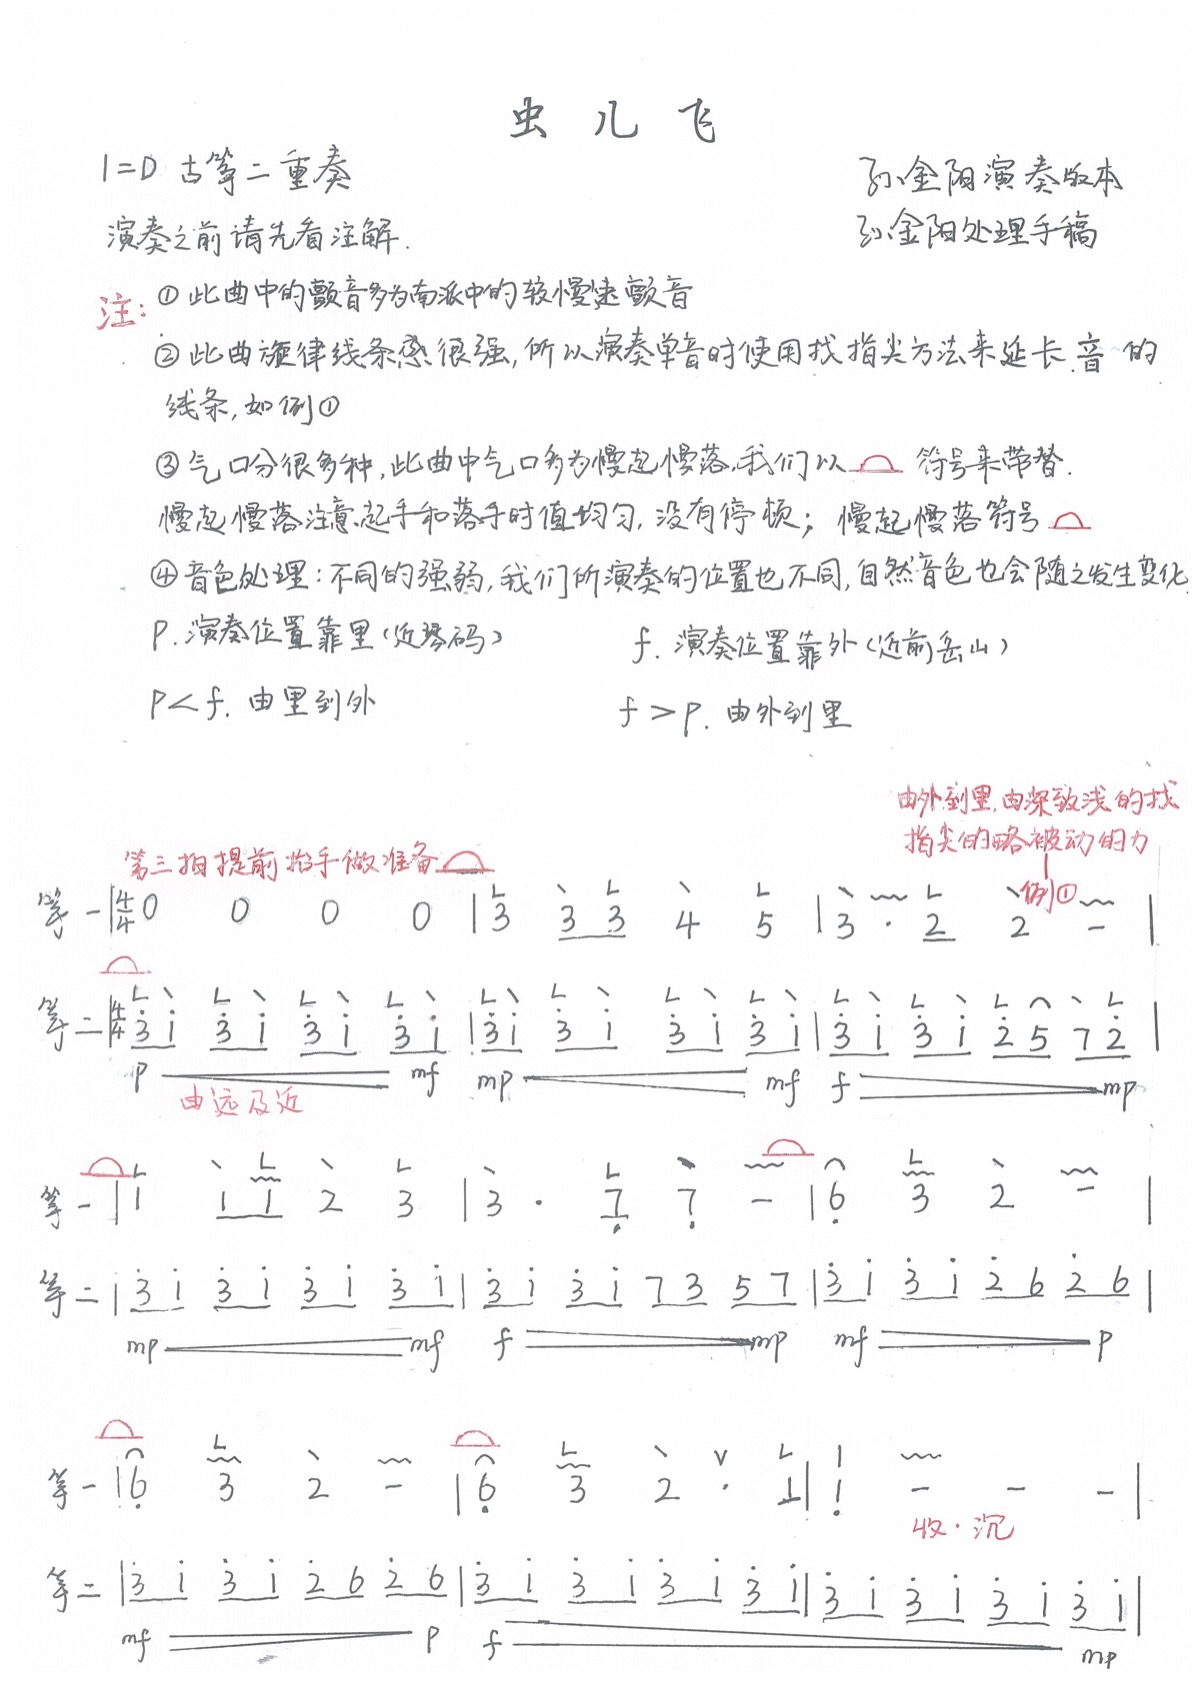 虫儿飞
1=D 古筝二重奏
孙金阳演奏版本
演奏之前请先看注解.
孙金阳处理手稿
注: ①此曲中的颤音多为南派中的较慢速颤音
②此曲旋律线条感很强,所以演奏单音时使用找指尖方法来延长音的
线条,如例①
③气口分很多种,此曲中气口多为慢起慢落,我们以 符号来带替.
慢起慢落注意起手和落手时值均匀,没有停顿; 慢起慢落符号
④音色处理:不同的强弱,我们所演奏的位置也不同,自然音色也会随之发生变化
P.演奏位置靠里(近琴码)
f.演奏位置靠外(近前岳山)
P<f. 由里到外
f>P. 由外到里
由外到里,由深致浅的找
指尖的略被动的力
第三拍提前抬手做准备
例①
筝一|4/4 0 0 0 0 | 3 3 3 4 5 | 3 · 2 2 – |
筝二|4/4 3 1 3 1 3 1 3 1 | 3 1 3 1 3 1 3 1 | 3 1 3 1 2 5 7 2 |
P mf mp mf f mp
由远及近
筝一| 1 1 1 2 3 | 3 · 7 7 – | 6 3 2 – |
筝二| 3 1 3 1 3 1 3 1 | 3 1 3 1 7 3 5 7 | 3 1 3 1 2 6 2 6 |
mp mf f mp mf P
筝一| 6 3 2 – | 6 3 2 · 1 | 1 – – – |
收·沉
筝二| 3 1 3 1 2 6 2 6 | 3 1 3 1 3 1 3 1 | 3 1 3 1 3 1 3 1 |
mf P f mp